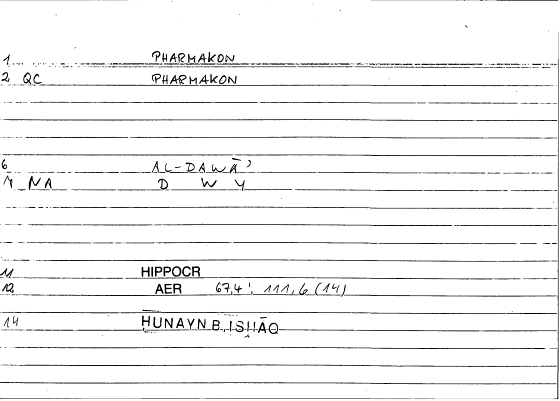 1 PHARMAKON
2 QC PHARMAKON
6 AL-DAWĀʾ
7 NA D W Y
11 HIPPOCR
12 AER 67,4; 111,6 (14)
14 HUNAYN B. ISḤĀQ